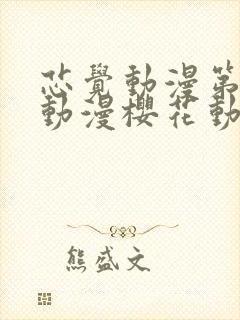 芯覺動漫第
動漫櫻花動
熊盛文